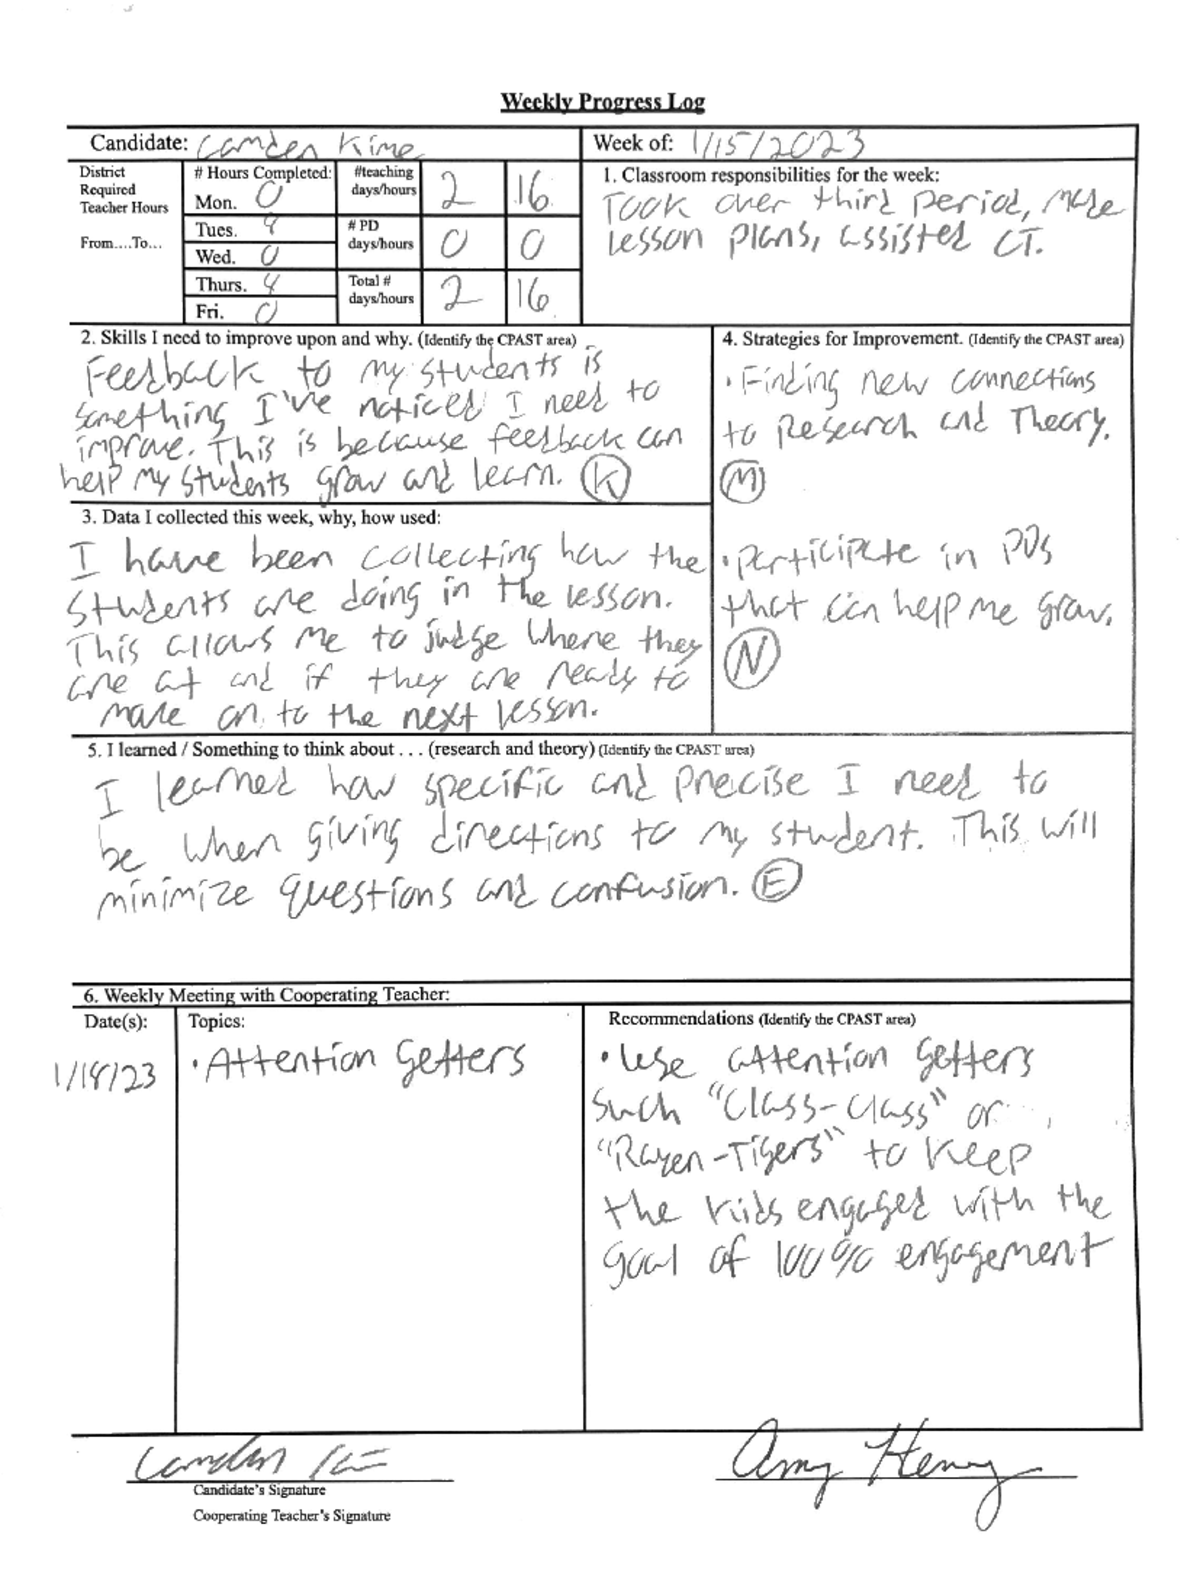 Weekly Progress Log
Candidate: Camden Kime
Week of: 1/15/2023
District
Required
Teacher Hours
From....To...
# Hours Completed:
Mon. 0
Tues. 8
Wed. 0
Thurs. 8
Fri. 0
#teaching
days/hours
2 16
# PD
days/hours
0 0
Total #
days/hours
2 16
1. Classroom responsibilities for the week:
Took over third period, made
lesson plans, assisted CT.
2. Skills I need to improve upon and why. (Identify the CPAST area)
Feedback to my students is
something I've noticed I need to
improve. This is because feedback can
help my students grow and learn. K
3. Data I collected this week, why, how used:
I have been collecting how the
students are doing in the lesson.
This allows me to judge where they
are at and if they are ready to
move on to the next lesson.
4. Strategies for Improvement. (Identify the CPAST area)
• Finding new connections
to Research and Theory.
M
• participate in PDs
that can help me grow.
N
5. I learned / Something to think about . . . (research and theory) (Identify the CPAST area)
I learned how specific and precise I need to
be when giving directions to my student. This will
minimize questions and confusion. E
6. Weekly Meeting with Cooperating Teacher:
Date(s):
1/18/23
Topics:
• Attention Getters
Recommendations (Identify the CPAST area)
• Use attention getters
such "Class-Class" or
"Rayen-Tigers" to keep
the kids engaged with the
goal of 100% engagement
Camden
Amy Henry
Candidate's Signature
Cooperating Teacher's Signature